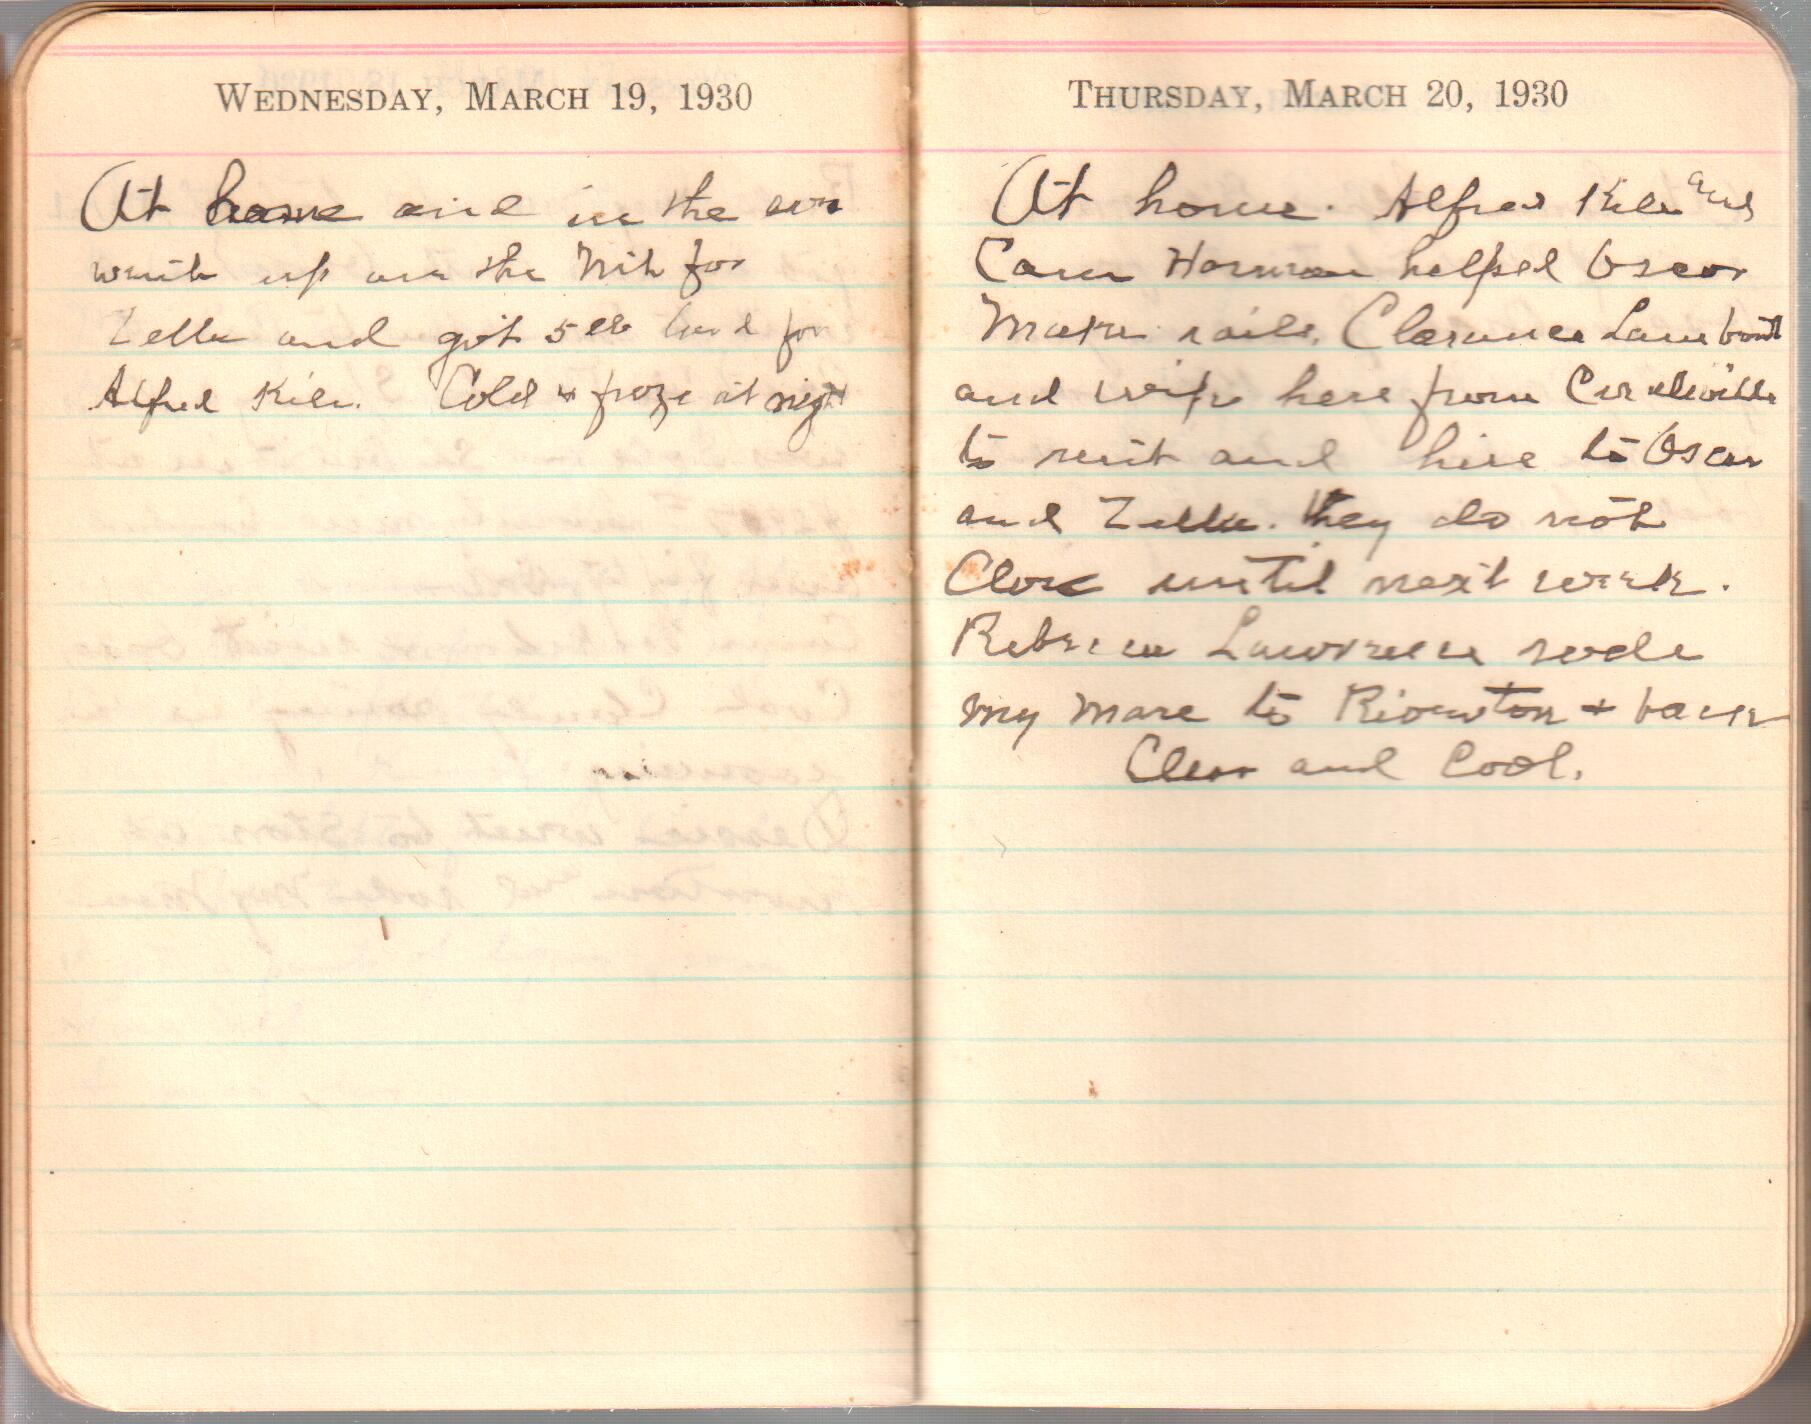 WEDNESDAY, MARCH 19, 1930
At home and in the eve
went up on the Mill for
Zella and got 5 lb lard for
Alfred Kile. Cold & froze at night
THURSDAY, MARCH 20, 1930
At home. Alfred Kile and
Cam Harman helped Oscar
Make rails. Clarence
and wife here from Circleville
to rent and hire to Oscar
and Zella. they do not
Close until next week.
Rebecca Lawrence rode
my mare to Riverton + back
Clear and Cool.